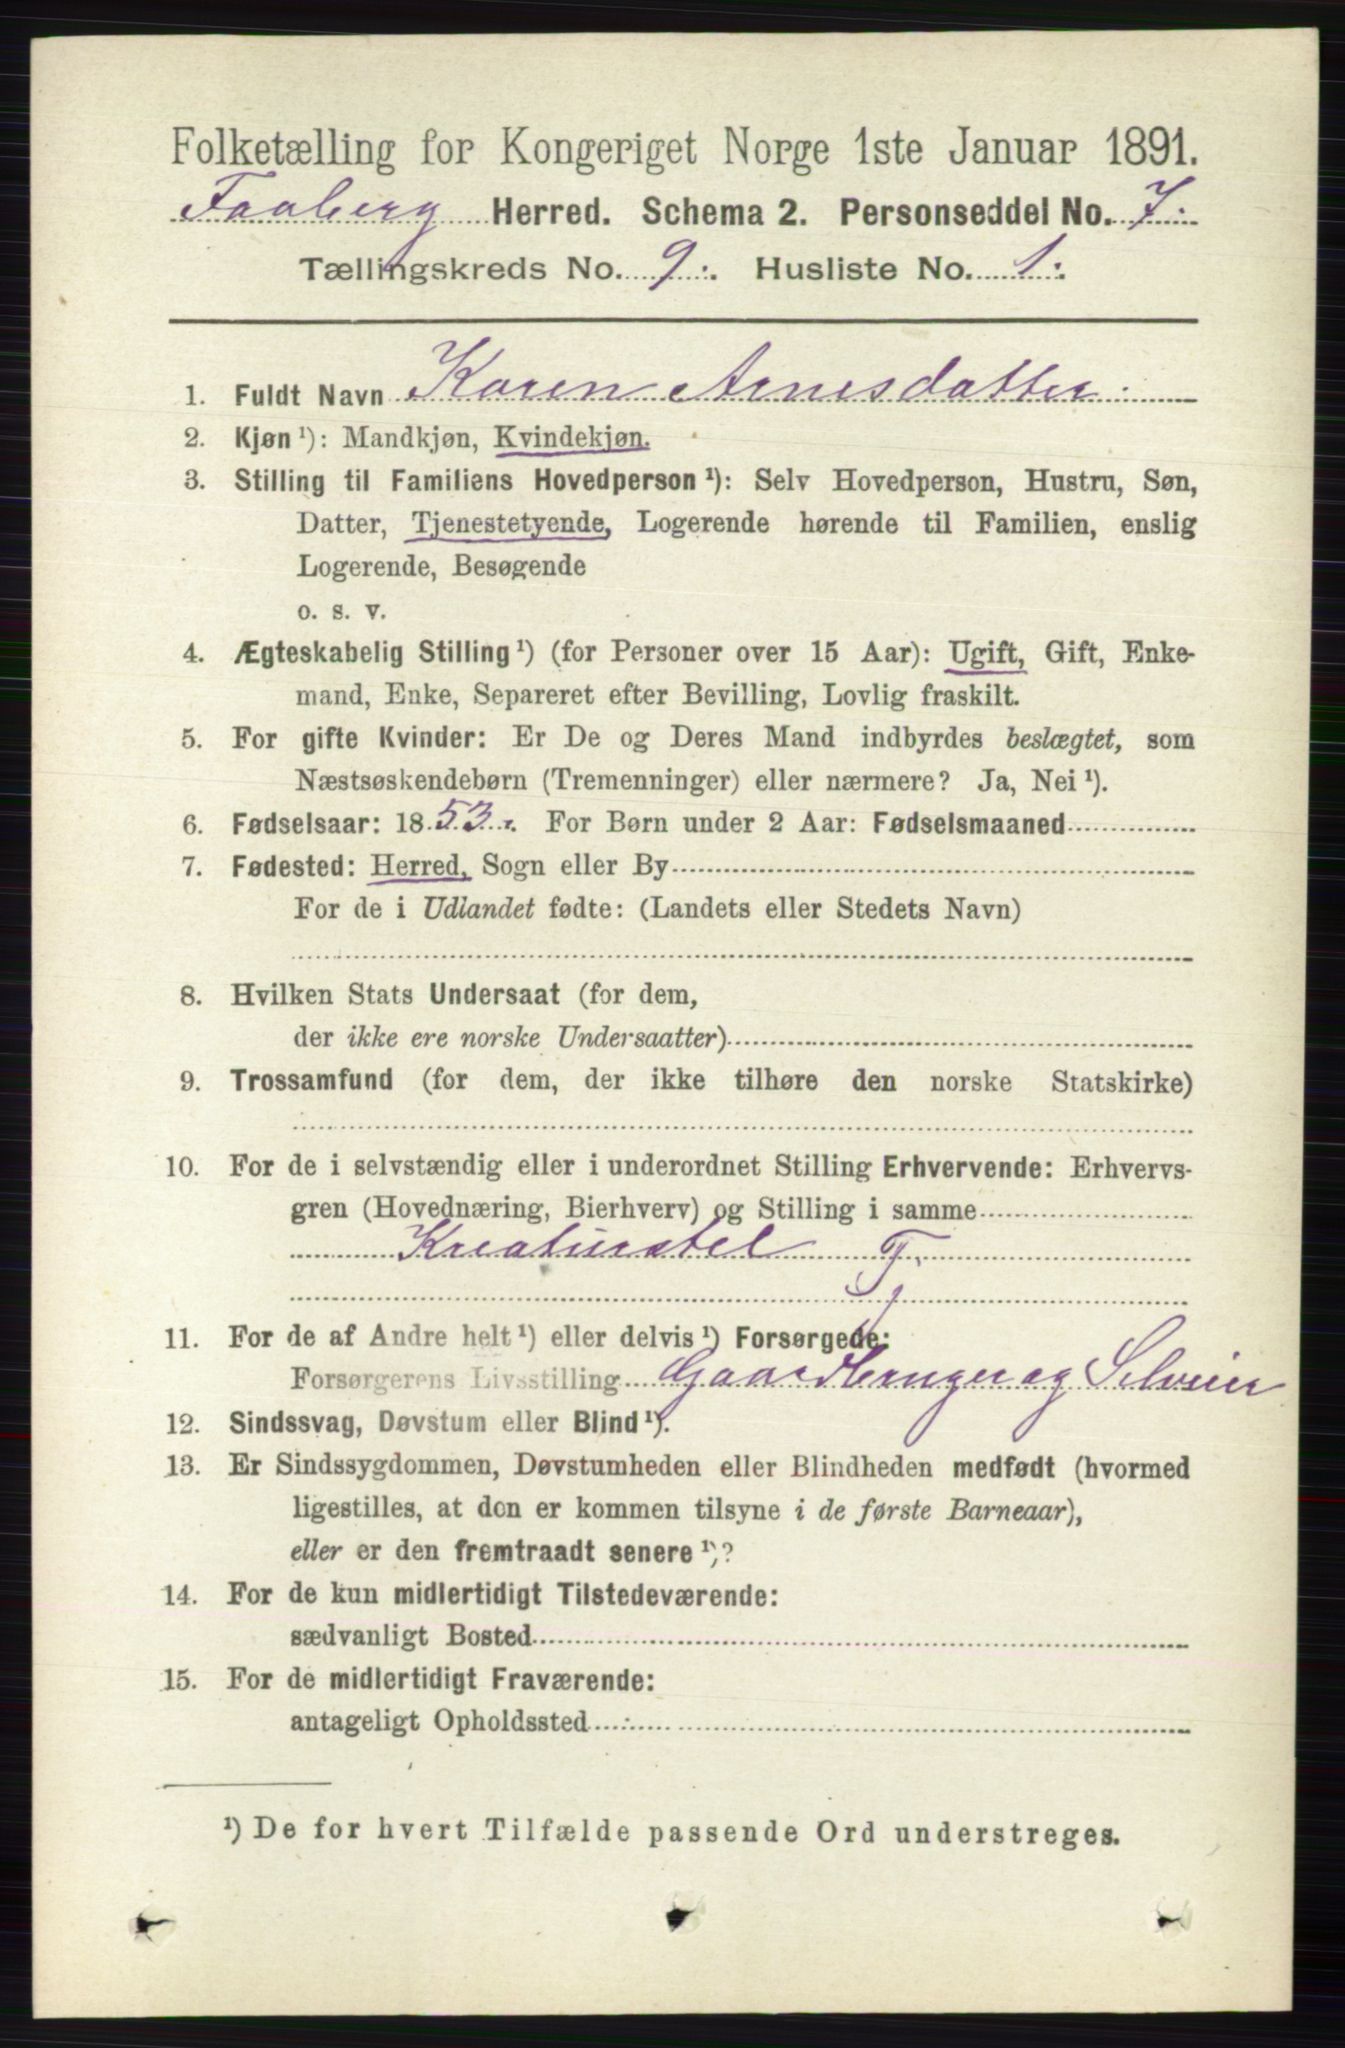 Folketælling for Kongeriget Norge 1ste Januar 1891.
Faaberg Herred. Schema 2. Personseddel No. 7.
Tællingskreds No. 9. Husliste No. 1.
1. Fuldt Navn Karen Arnesdatter
2. Kjøn ¹): Mandkjøn, Kvindekjøn.
3. Stilling til Familiens Hovedperson ¹): Selv Hovedperson, Hustru, Søn,
Datter, Tjenestetyende, Logerende hørende til Familien, enslig
Logerende, Besøgende
o. s. v.
4. Ægteskabelig Stilling ¹) (for Personer over 15 Aar): Ugift, Gift, Enke-
mand, Enke, Separeret efter Bevilling, Lovlig fraskilt.
5. For gifte Kvinder: Er De og Deres Mand indbyrdes beslægtet, som
Næstsøskendebørn (Tremenninger) eller nærmere? Ja, Nei ¹).
6. Fødselsaar: 1853. For Børn under 2 Aar: Fødselsmaaned
7. Fødested: Herred, Sogn eller By
For de i Udlandet fødte: (Landets eller Stedets Navn)
8. Hvilken Stats Undersaat (for dem,
der ikke ere norske Undersaatter)
9. Trossamfund (for dem, der ikke tilhøre den norske Statskirke)
10. For de i selvstændig eller i underordnet Stilling Erhvervende: Erhvervs-
gren (Hovednæring, Bierhverv) og Stilling i samme
Kreaturstel T.
11. For de af Andre helt ¹) eller delvis ¹) Forsørgede:
Forsørgerens Livsstilling Gaardbruger og Selveier
12. Sindssvag, Døvstum eller Blind ¹).
13. Er Sindssygdommen, Døvstumheden eller Blindheden medfødt (hvormed
ligestilles, at den er kommen tilsyne i de første Barneaar),
eller er den fremtraadt senere ¹)?
14. For de kun midlertidigt Tilstedeværende:
sædvanligt Bosted
15. For de midlertidigt Fraværende:
antageligt Opholdssted
¹) De for hvert Tilfælde passende Ord understreges.